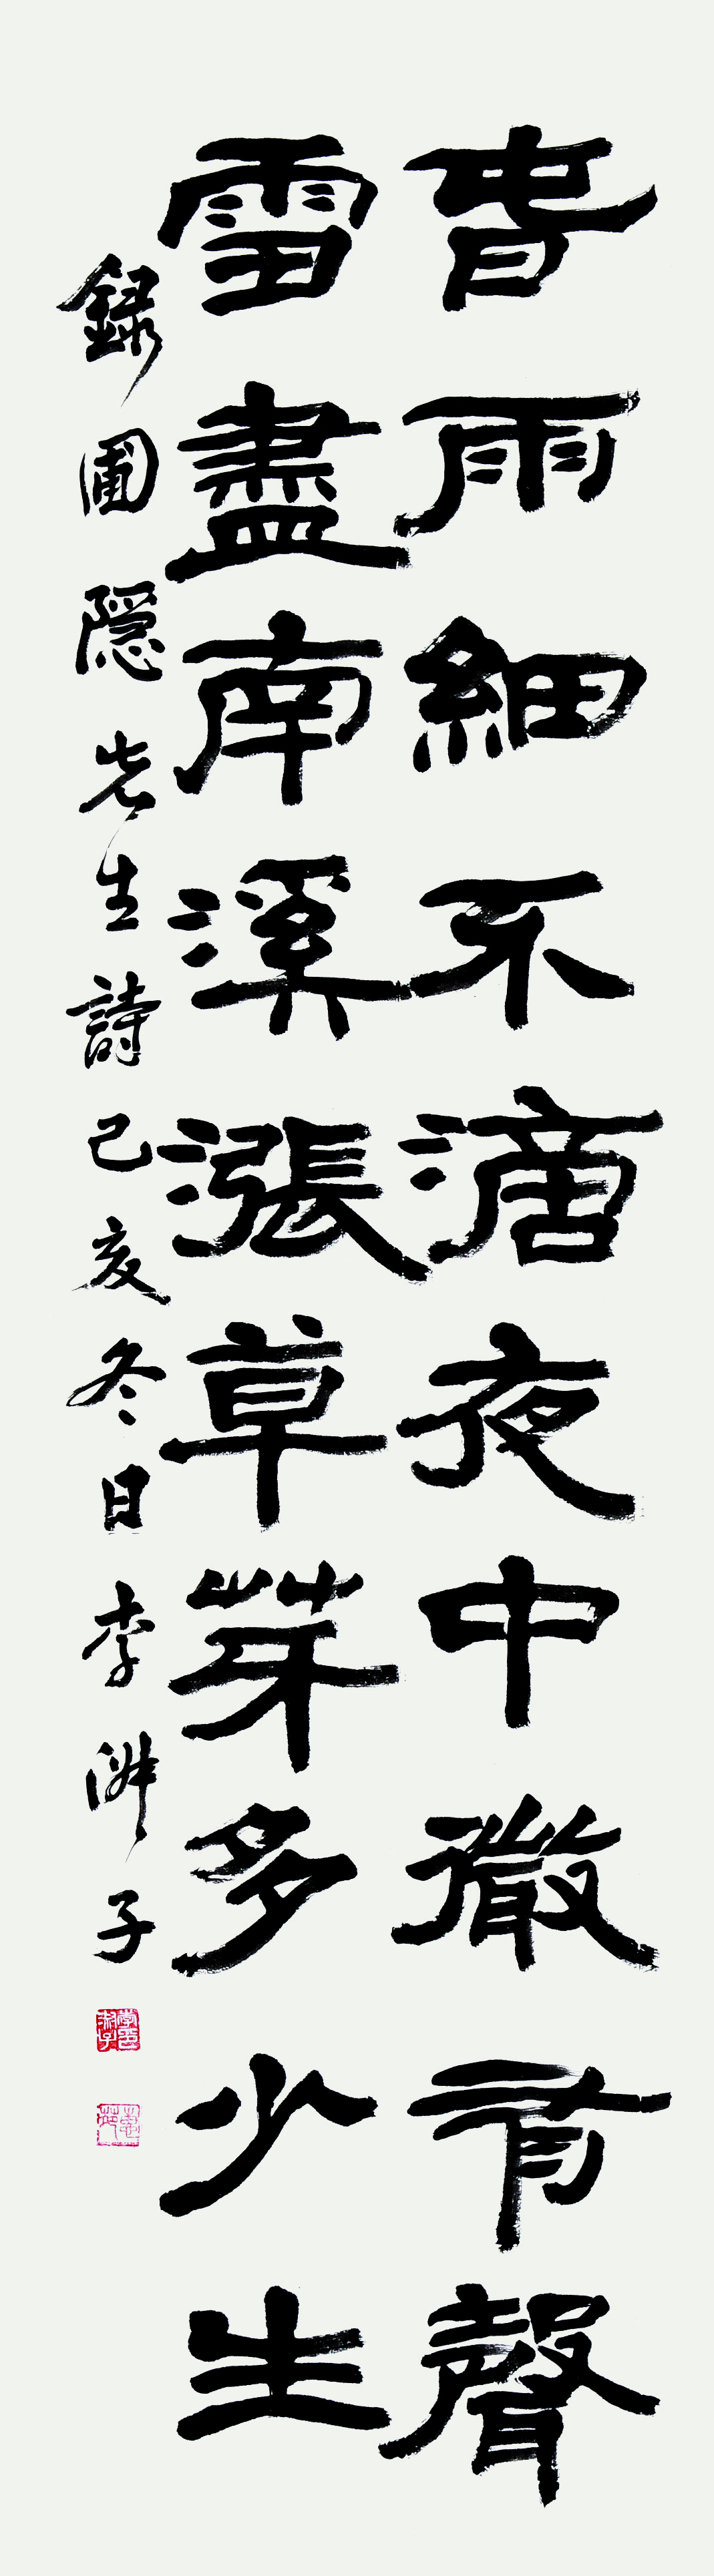 春雨細不滴夜中微有聲
雪盡南溪漲草芽多少生
録圃隱先生詩己亥冬日李淑子